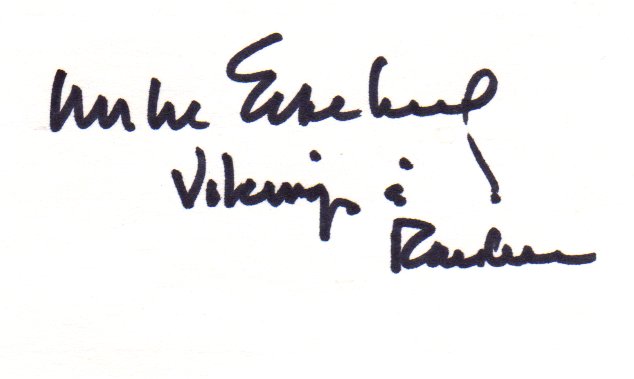 Mike Eischeid
Vikings &
Raiders